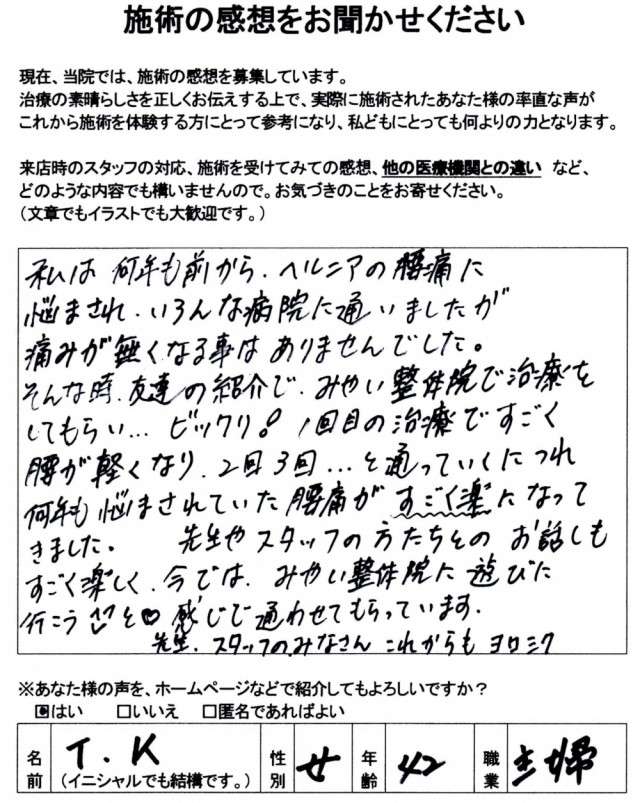 施術の感想をお聞かせください
現在、当院では、施術の感想を募集しています。
治療の素晴らしさを正しくお伝えする上で、実際に施術されたあなた様の率直な声が
これから施術を体験する方にとって参考になり、私どもにとっても何よりの力となります。
来店時のスタッフの対応、施術を受けてみての感想、他の医療機関との違い など、
どのような内容でも構いませんので。お気づきのことをお寄せください。
（文章でもイラストでも大歓迎です。）
私は 何年も前から、ヘルニアの腰痛に
悩まされ、いろんな病院に通いましたが
痛みが無くなる事は ありませんでした。
そんな時、友達の紹介で、みやい整体院で治療を
してもらい… ビックリ! 1回目の治療ですごく
腰が軽くなり、2回3回…と通っていくにつれ
何年も悩まされていた腰痛が すごく楽になって
きました。 先生やスタッフの方たちとの お話しも
すごく楽しく、今では、みやい整体院に 遊びに
行こう と♡感じで通わせてもらっています。
先生、スタッフのみなさん これからも ヨロシク
※あなた様の声を、ホームページなどで紹介してもよろしいですか？
☑はい □いいえ □匿名であればよい
名前 T.K （イニシャルでも結構です。） 性別 女 年齢 42 職業 主婦